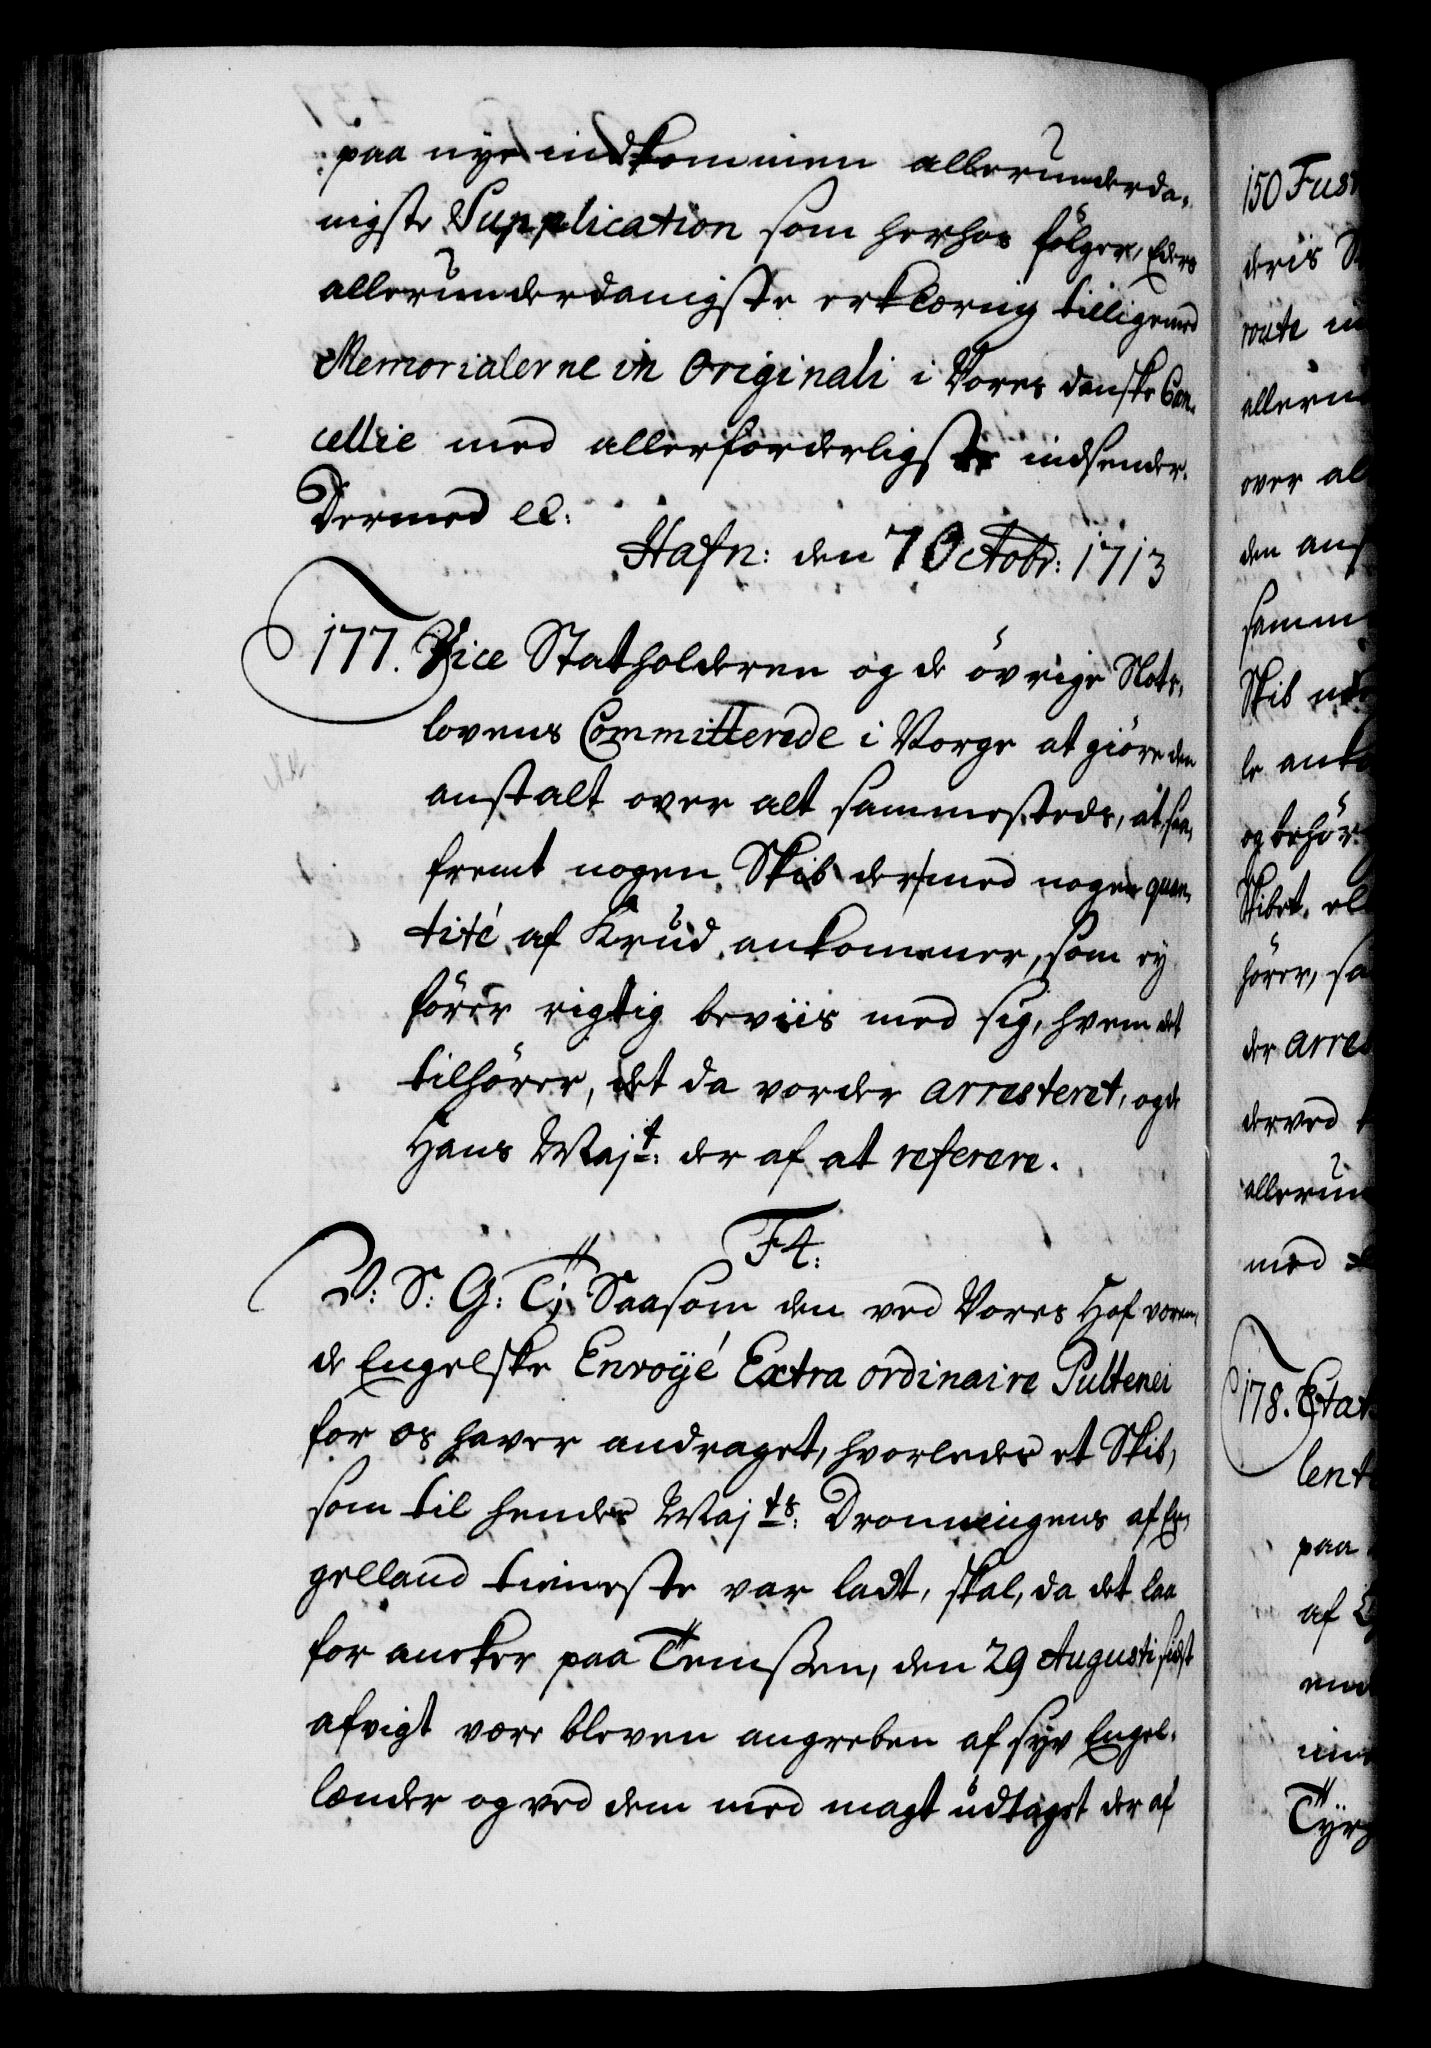 paa nye indkommen allerunderda-
nigste Supplication som herhos fölger, Eders
allerunderdanigste erklæring tilligemed
Memorialerne in Originali i Vores danske Can-
cellie med allerforderligste indsender.
Dermed etc:
Hafn: den 7 Octobr: 1713
177. Vice Statholderen og de övrige Slots-
lovens Committerede i Norge at giöre den
anstalt over alt sammesteds, at saa-
fremt nogen Skib der med nogen quan-
tité af Krud ankommer, som ey
förer rigtig beviis med sig, hvem det
tilhörer, det da vorder arresteret, og de
Hans Majt: der af at referere.
F4:
V: S: G: T; Saasom den ved Vores Hof væren-
de Engelske Envoÿé Extra ordinaire Pultenei
for os haver andraget, hvorledes et Skib,
som til hendes Majts: Dronningens af En-
gelland tieneste var ladt, skal, da det laa
for ancker paa Temssen, den 29 Augusti sidst
afvigt være bleven angreben af syv Engel-
lænder og ved dem med magt udtaget der af
150 Fus
deris
route
allerun
over al
den an
samm
Skib
le anko
og behör
Skibet
hörer, sa
der arres
derved
allerun
med
178. Etat
lent
paa
af
Tyr